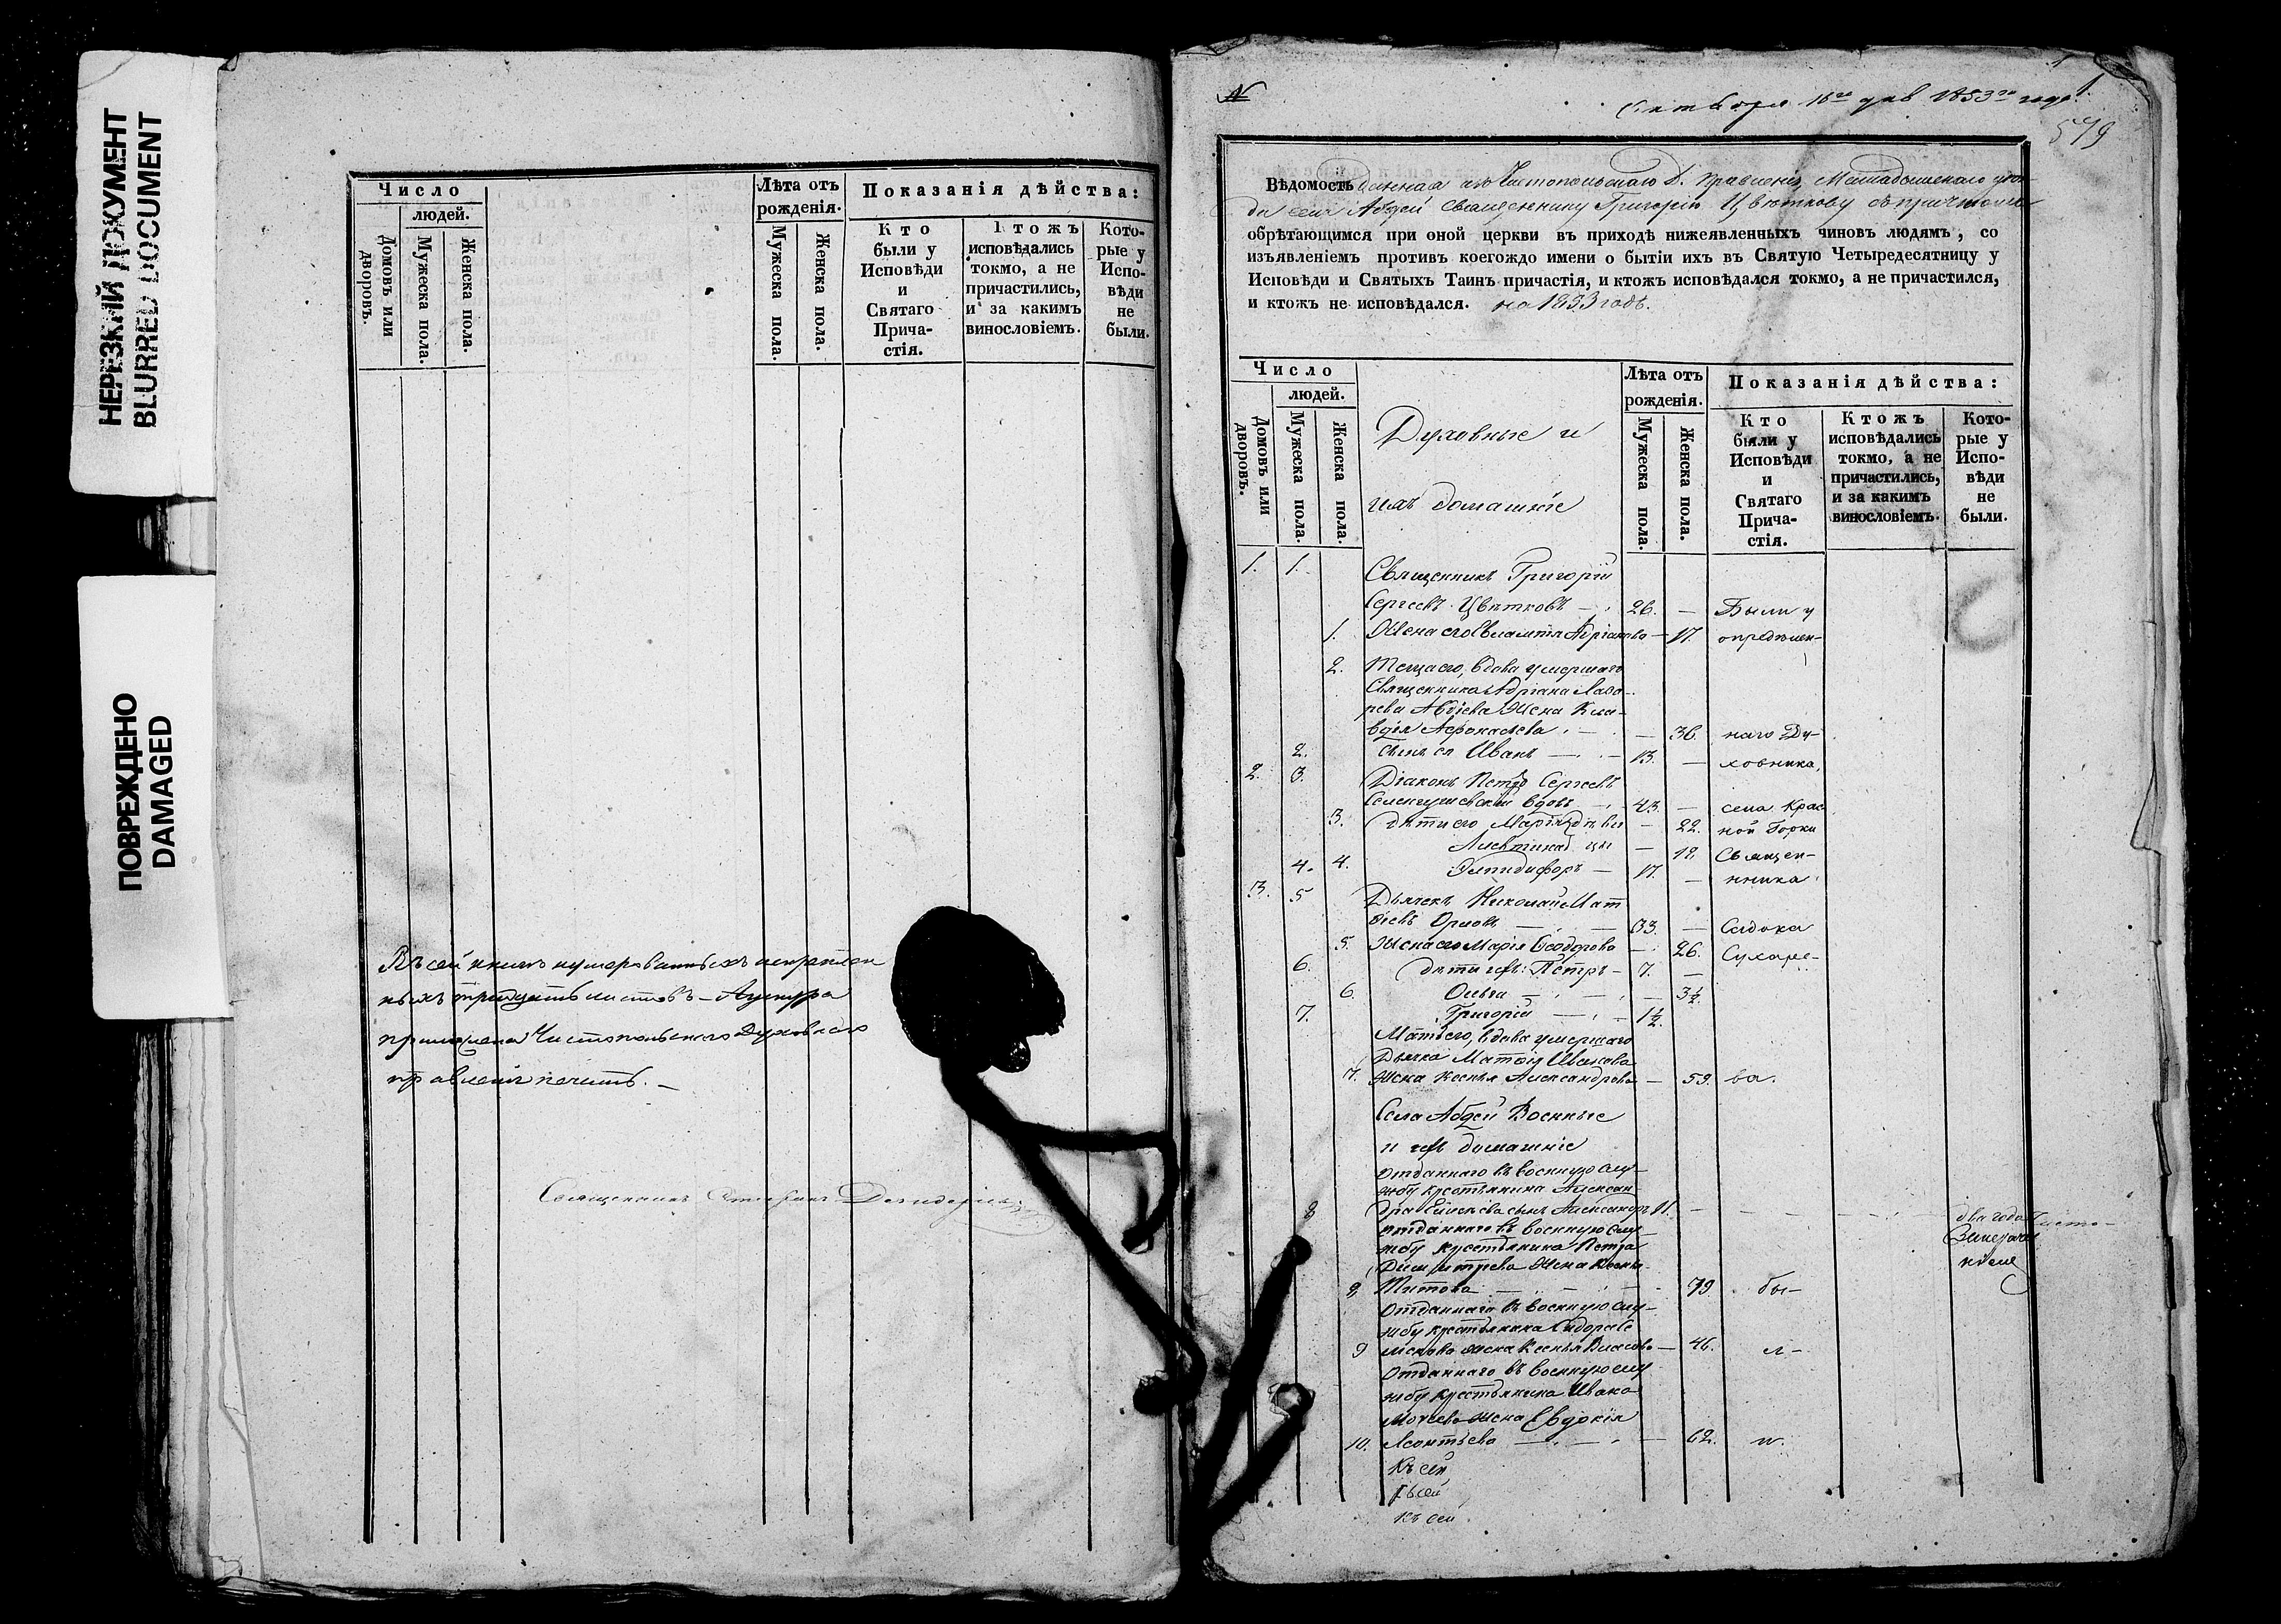 НЕРЕЗКИЙ ДОКУМЕНТ
BLURRED DOCUMENT
ПОВРЕЖДЕНО
DAMAGED
Число
людей.
Домовъ или дворовъ.
Мужеска пола.
Женска пола.
Лѣта отъ рожденія.
Мужеска пола.
Женска пола.
Показанія дѣйства:
Кто
были у
Исповѣди
и
Святаго
Прича-
стія.
Ктожъ
исповѣдались
токмо, а не
причастились,
и за какимъ
винословіемъ.
Кото-
рые у
Испо-
вѣди
не
были.
Въ сей книгѣ нумерованныхъ
ныхъ тридцать листовъ –
приложена Чистопольскаго Духовнаго
правленія печать. –
Священникъ
№
Октября 16го дня 1853го года.
1
579
Вѣдомость данная изъ Чистопольскаго Д. Правленія, Мамадышскаго уѣз-
да села Абдей священнику Григорію Цвѣткову съ причтомъ
обрѣтающимся при оной церкви въ приходѣ нижеявленныхъ чиновъ людямъ, со
изъявленіемъ противъ коегождо имени о бытіи ихъ въ Святую Четыредесятницу у
Исповѣди и Святыхъ Таинъ причастія, и ктожъ исповѣдался токмо, а не причастился,
и ктожъ не исповѣдался. на 1853 годъ.
Число
людей.
Домовъ или дворовъ.
Мужеска пола.
Женска пола.
Духовные и
ихъ домашніе
Лѣта отъ
рожденія.
Мужеска пола.
Женска пола.
Показанія дѣйства:
Кто
были у
Исповѣди
и
Святаго
Прича-
стія.
Ктожъ
исповѣдались
токмо, а не
причастились,
и за какимъ
винословіемъ.
Кото-
рые у
Испо-
вѣди
не
были.
1. 1. Священникъ Григорій
Сергеевъ Цвѣтковъ – 26. – Были у
1. Жена его Адріанова – 17. опредѣлен-
2. Теща его, вдова умершаго
Священника Адріана Лаза-
рева Авдіева Жена Кла-
вдія – 36. наго Ду-
2. Сынъ ея Иванъ – 13. – ховника,
2. 3. Діаконъ Петръ Сергеевъ
вдовъ – 43. – села Крас
3. дѣти его Марія дѣви – 22. ной Горки
цы – 12. Священ-
4. 4. Елпидифоръ – 17. – нника
3. 5 Дьячекъ Николай Мат
ѳіевъ Орловъ – 33. – Сидока
5. Жена его Марія Ѳеодорова – 26. Сухаре-
6. дѣти ихъ: Петръ – 7. –
6. Ольга – – 3½.
7. Григорій – 1½.
Мать его, вдова умершаго
Дьячка Матѳія Иванова
7. Жена Ксенья Александрова – 59. ва.
Села Абдей Военные
и ихъ домашніе
Отданнаго въ военную слу-
жбу крестьянина Алексан-
8 дра сынъ Александръ 11. – два года
отданнаго въ военную слу-
жбу крестьянина Петра
Димитрева Жена
8 Титова – 79. бы-
Отданнаго въ военную слу-
жбу крестьянина Сидора
9 жена Ксенья Власова – 46. л-
Отданнаго въ военную слу
жбу крестьянина Ивана
Жена Евдокія
10. Леонтьева – 62. и.
Къ сей
Къ сей
Къ сей